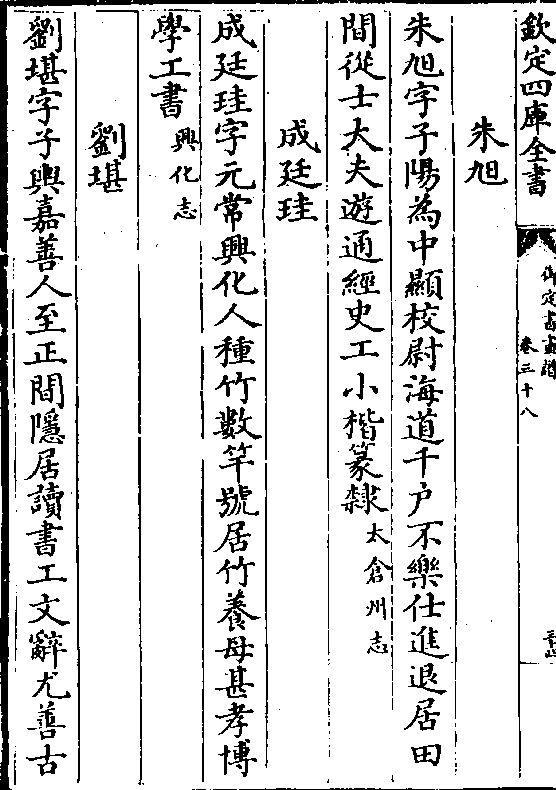 欽定四庫全書
御定書畫譜
卷三十八
朱旭
朱旭字子陽為中顯校尉海道千户不樂仕進退居田
間從士大夫遊通經史工小楷篆隸太倉州志
成廷珪
成廷珪字元常興化人種竹數竿號居竹養母甚孝博
學工書興化志
劉堪
劉堪字子輿嘉善人至正間隱居讀書工文辭尤善古